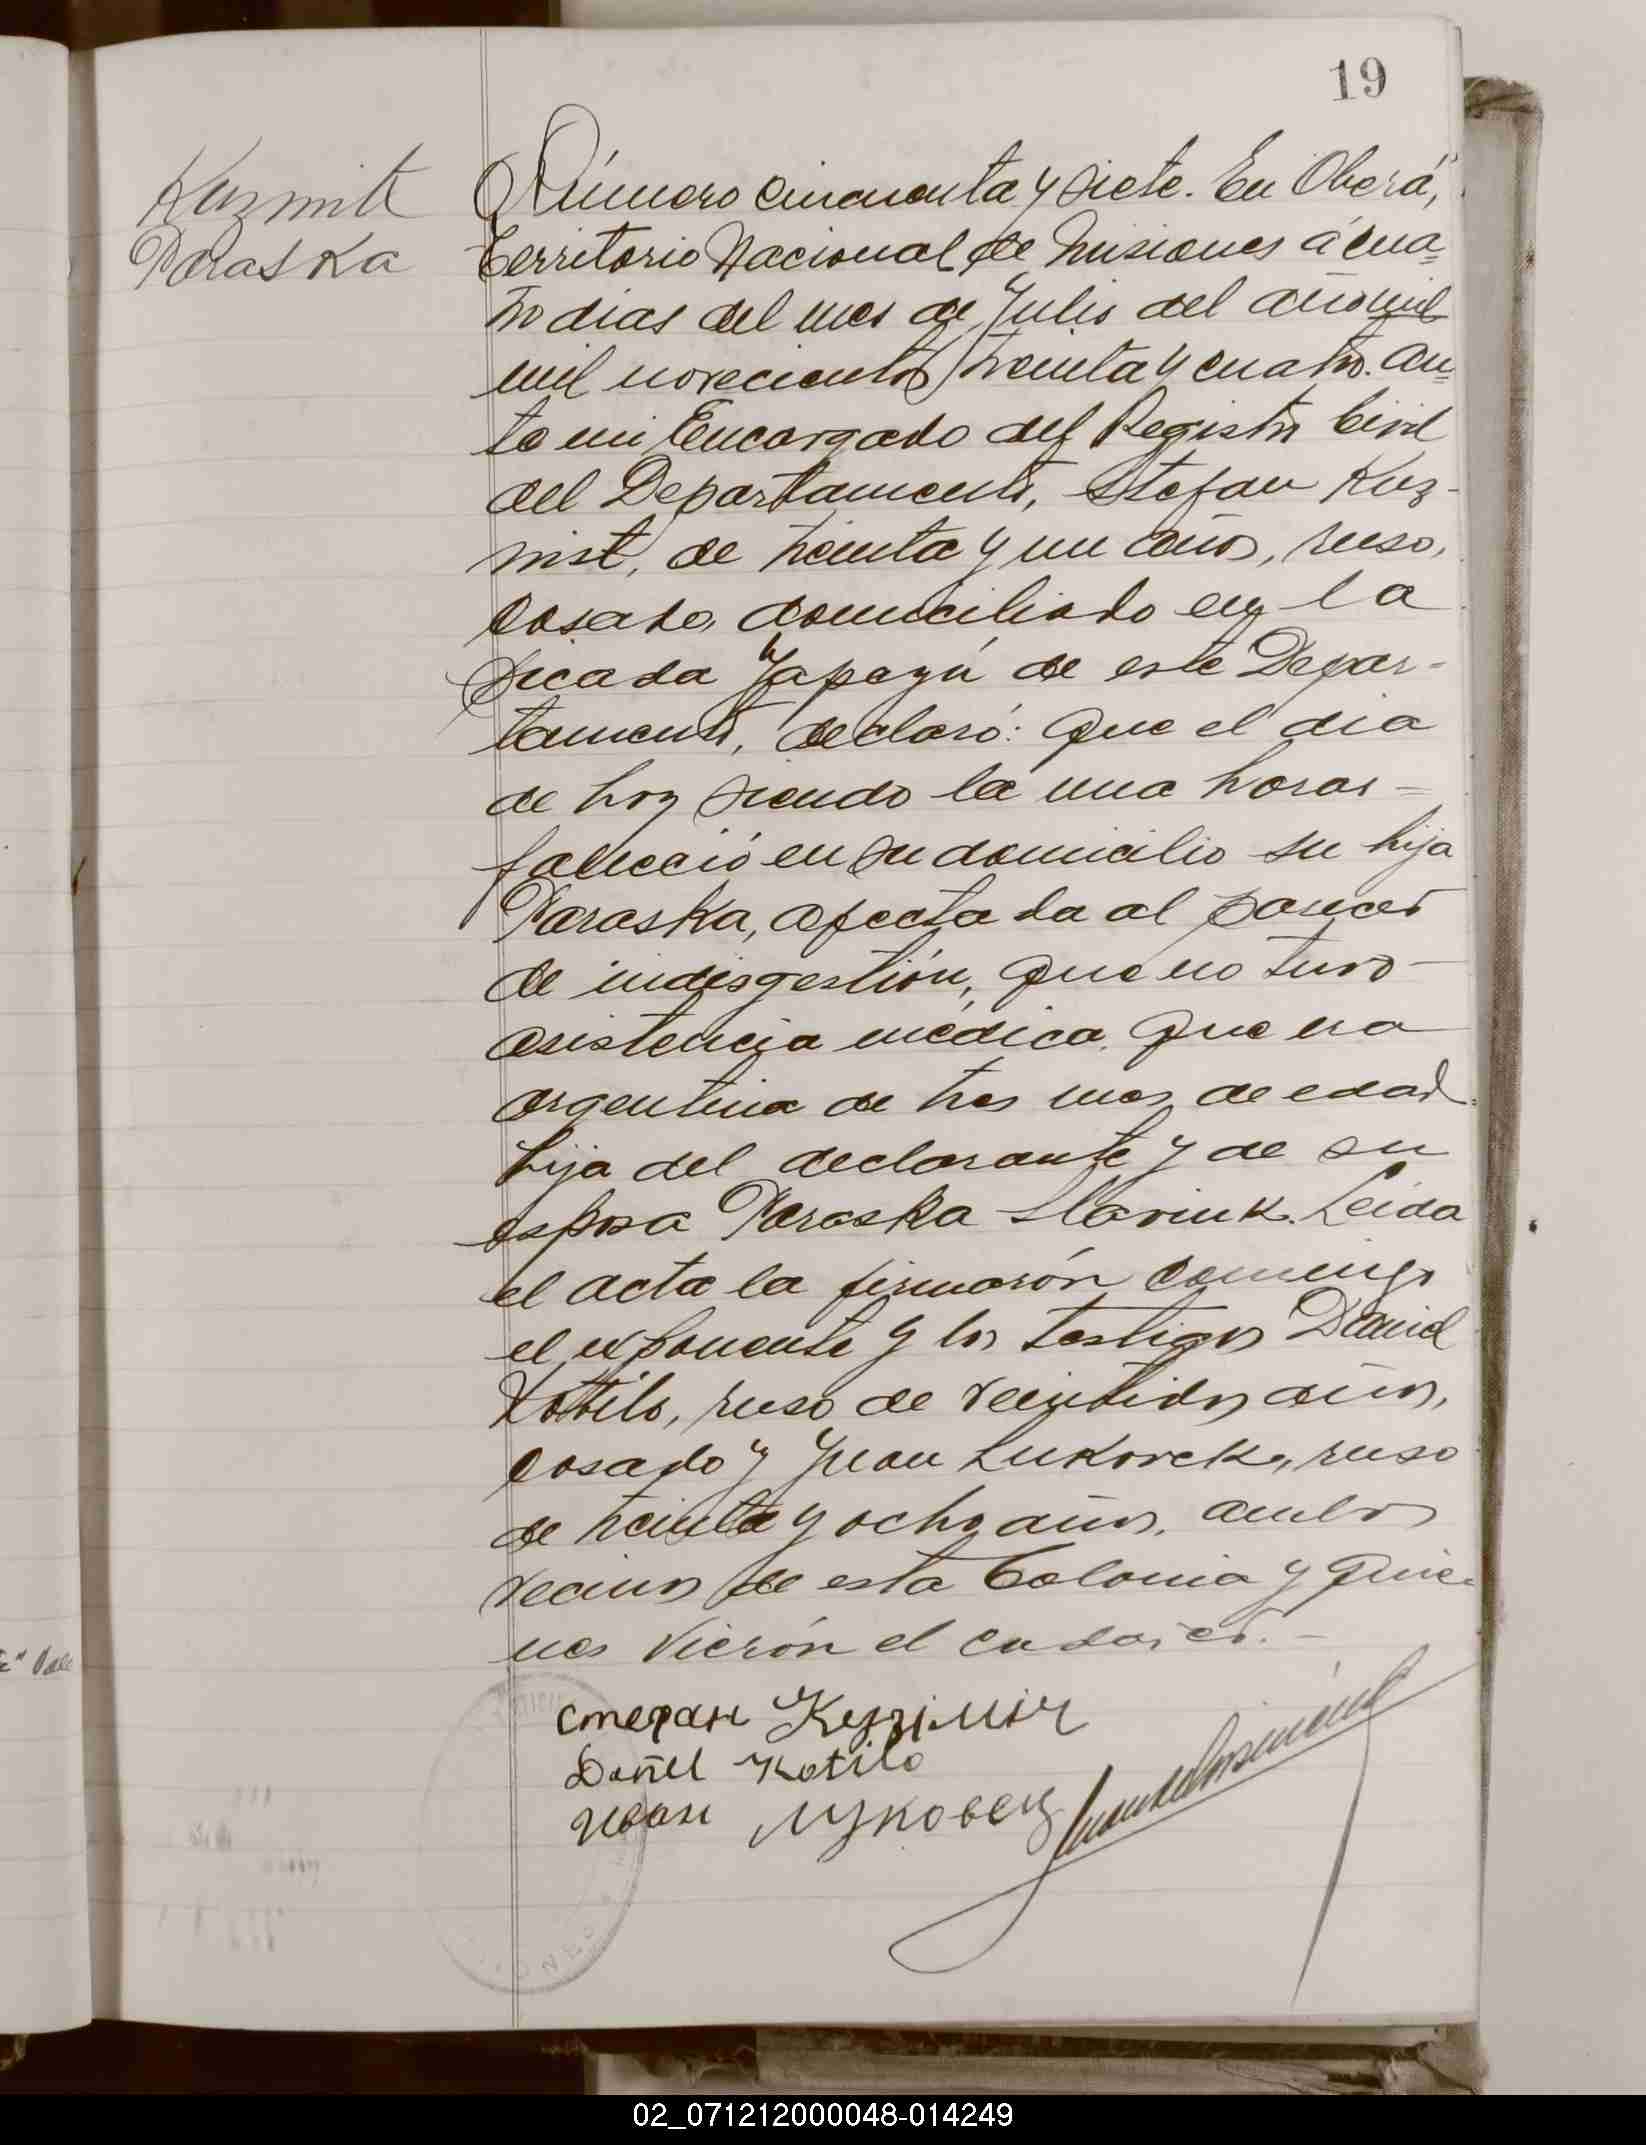 19
Kuzmit
Paraska
Número cincuenta y siete. En Oberá,
Territorio Nacional de Misiones á cua=
tro dias del mes de Julio del año mil
mil novecientos treinta y cuatro. An=
te mi Encargado del Registro Civil
del Departamento, Stefan Kuz-
mit, de treinta y un años, ruso,
casado, domiciliado en la
picada Yapeyú de este Depar-
tamento, declaró: Que el dia
de hoy siendo la una horas =
falleció en su domicilio su hija
Paraska, afectada al parecer
de indisgestión, que no tuvo
asistencia médica. Que era
argentina de tres mes de edad
hija del declarante y de su
esposa Paraska Slaviuk. Leida
el acta la firmarón conmigo
el exponente y los testigos Daniel
Kotilo, ruso de veintidos años,
casado y Juan Lukovek, ruso
de treinta y ocho años, ambos
vecinos de esta Colonia y quie-
nes vierón el cadaver. -
Стефан Кузімич
Dañel Kotilo
Иван Луковец
02_071212000048-014249